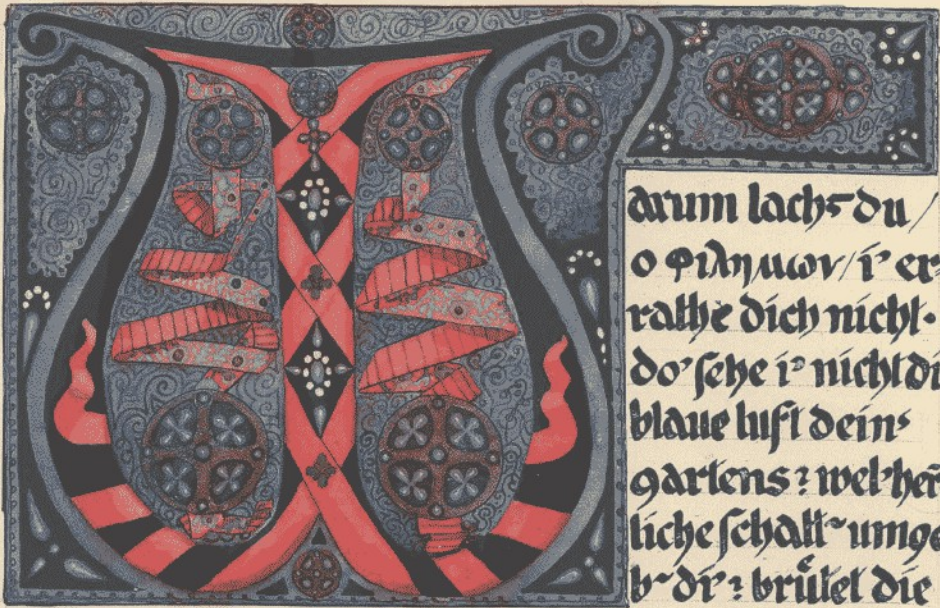 Warum lachst du /
o φιλημων / i’ er-
rathe dich nicht·
do’ sehe i’ nicht di
blaue luft dein’
gartens? wel’ her̄
liche schatt~ umge
b~ di’? brütet die